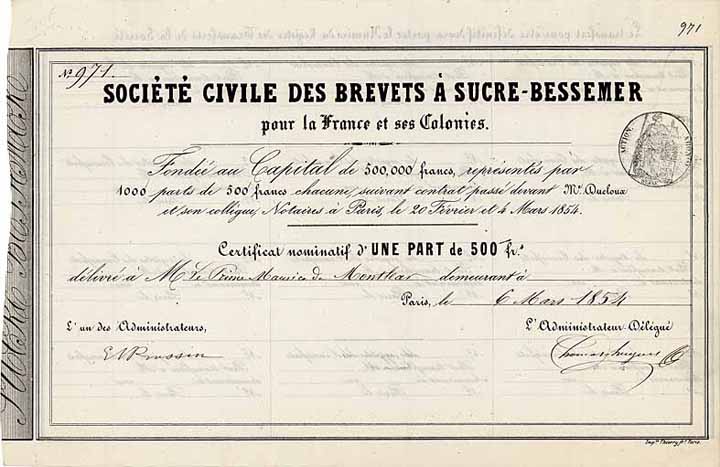 971
Nº 971.
SOCIÉTÉ CIVILE DES BREVETS À SUCRE-BESSEMER
pour la France et ses Colonies.
Fondée au Capital de 500,000 francs, représentés par
1000 parts de 500 francs chacune, suivant contrat passé devant Me. Ducloux
et son collègue, Notaires à Paris, le 20 Février et 4 Mars 1854.
Certificat nominatif d'UNE PART de 500 fr.s
délivré à M. le Prince Maurice de Montléar demeurant à
Paris, le 6 Mars 1854
L'un des Administrateurs,
L'Administrateur Délégué
Impie. Thierry, frs. Paris.
SUCRE BESSEMER